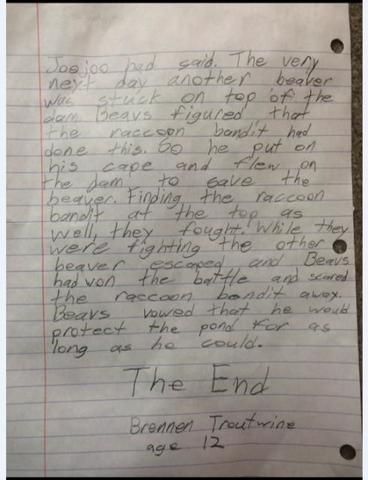 Joojoo had said. The very
next day another beaver
was stuck on top of the
dam. Beavs figured that
the raccoon bandit had
done this. So he put on
his cape and flew on
the dam to save the
beaver. Finding the raccoon
bandit at the top as
well, they fought. While they
were fighting the other
beaver escaped and Beavs
had won the battle and scared
the raccoon bandit away.
Beavs vowed that he would
protect the pond for as
long as he could.
The End
Brennen Troutwine
age 12